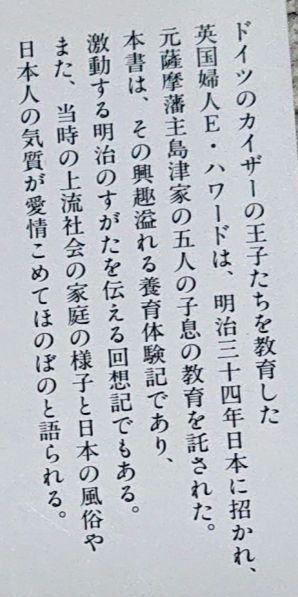 ドイツのカイザーの王子たちを教育した
英国婦人E・ハワードは、明治三十四年日本に招かれ、
元薩摩藩主島津家の五人の子息の教育を託された。
本書は、その興趣溢れる養育体験記であり、
激動する明治のすがたを伝える回想記でもある。
また、当時の上流社会の家庭の様子と日本の風俗や
日本人の気質が愛情こめてほのぼのと語られる。